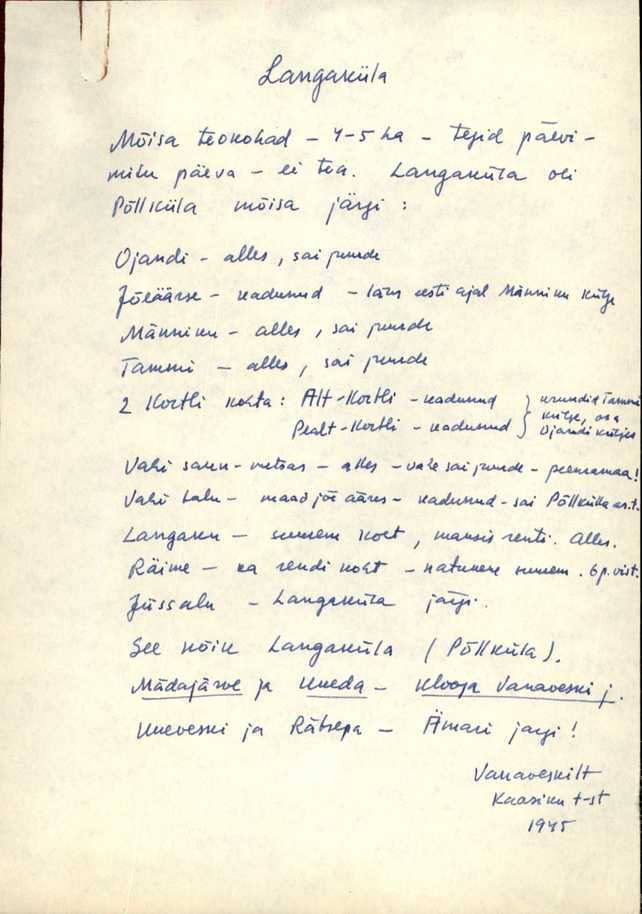 Langaküla
Mõisa teokohad – 4-5 ha – tegid päevi-
mitu päeva – ei tea. Langaküla oli
Põllküla mõisa järgi:
Ojandi – alles, sai juurde
Jõeäärse – kadunud – läks eesti ajal Männiku külge
Männiku – alles, sai juurde
Tammi – alles, sai juurde
2 Kortli kohta: Alt-Kortli – kadunud } krundid Tammi
Pealt-Kortli – kadunud } külge, osa
Ojandi küljes
Vahi saun – metsas – alles – sai juurde – peenramaa!
Vahi talu – maad jõe ääres – kadunud – sai Põllküla as.t.
Langaku – suurem koht, maksis renti. Alles.
Räime – ka rendi koht – natukene suurem. 6 p. vist.
Jüssalu – Langaküla järgi.
See kõik Langaküla (Põllküla).
Mädajärve ja Kueda – Klooga Vanaveski j.
Kueveski ja Rätsepa – Ämari jargi!
Vanaveskilt
Kaasiku t-st
1975